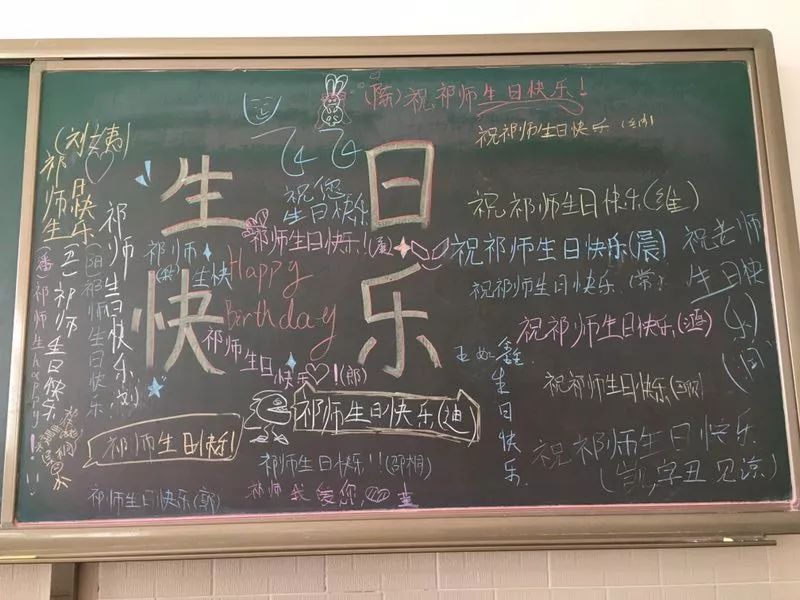 (陈)祝祁师生日快乐!
祝祁师生日快乐
生日
快乐
Happy
Birthday
祝您
生日快乐
祁师生日快乐!
祁师
生快
祁师生日快乐!(郎)
祝祁师生日快乐(维)
祝祁师生日快乐(晨)
祝祁师生日快乐(常)
祝祁师生日快乐(鸿)
祝祁师生日快乐
祝老师
生日快
乐)
祝祁师生日快乐
(凯,字丑见凉)
鑫
生日快乐.
祁师生日快乐(迪)
祁师生日快乐!
祁师生日快乐!!(邵桐)
祁师生日快乐(郭)
祁师我爱您
祁师生日快乐
祁师生日快乐刘
祁师生日快乐
祁师生日快乐
祁师生happy!!!